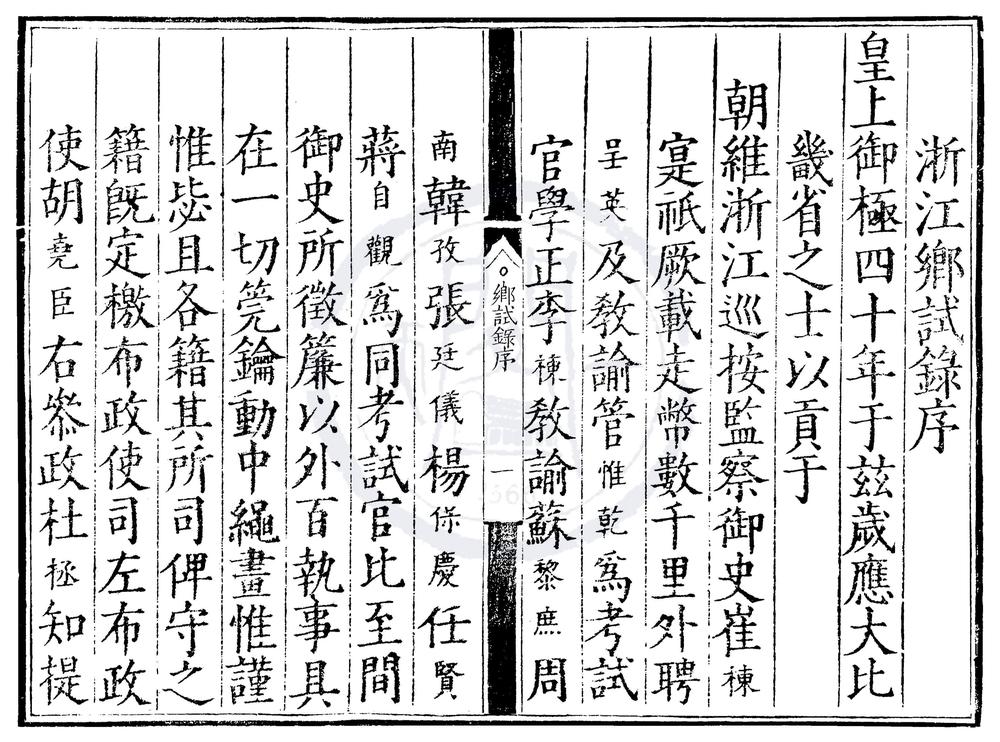 浙江鄉試錄序
皇上御極四十年于兹歲應大比
畿省之士以貢于
朝維浙江巡按監察御史崔棟
寔祇厥載走幣數千里外聘
官學正李棟教諭蘇黎庶周
呈英及敎諭管惟乾爲考試
鄉試錄序
一
南韓孜張廷儀楊保慶任賢
蔣自觀爲同考試官比至間
御史所徵簾以外百執事具
在一切筦鑰動中繩畫惟謹
惟毖且各籍其所司俾守之
籍旣定檄布政使司左布政
使胡堯臣右叅政杜拯知提